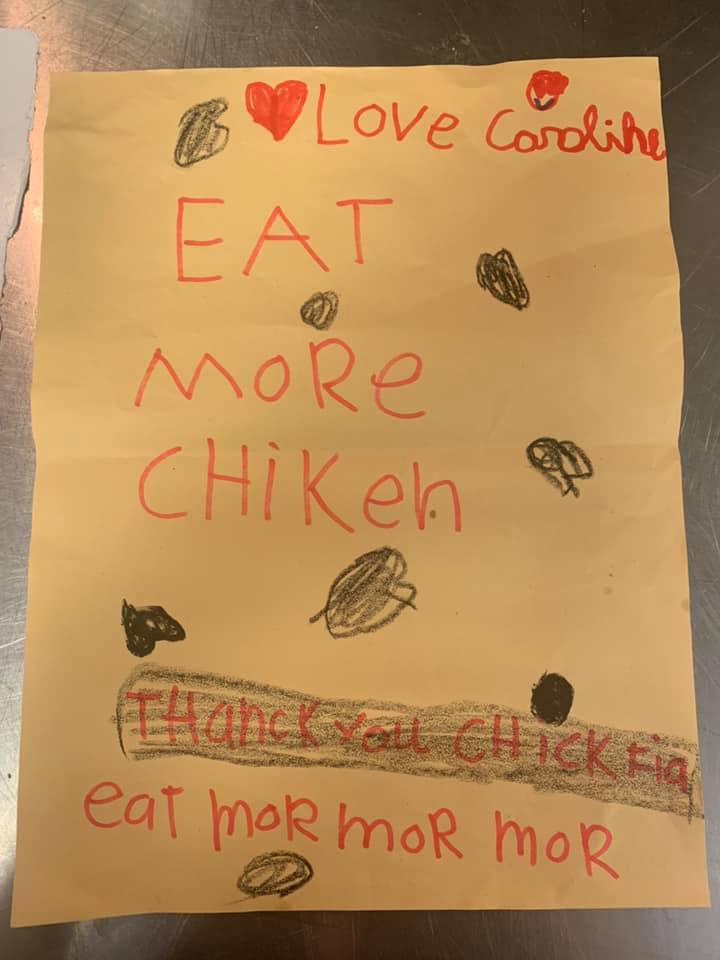 Love Caroline
EAT
MoRe
CHiKen
THancK you CHicK Fia
eat moR moR moR